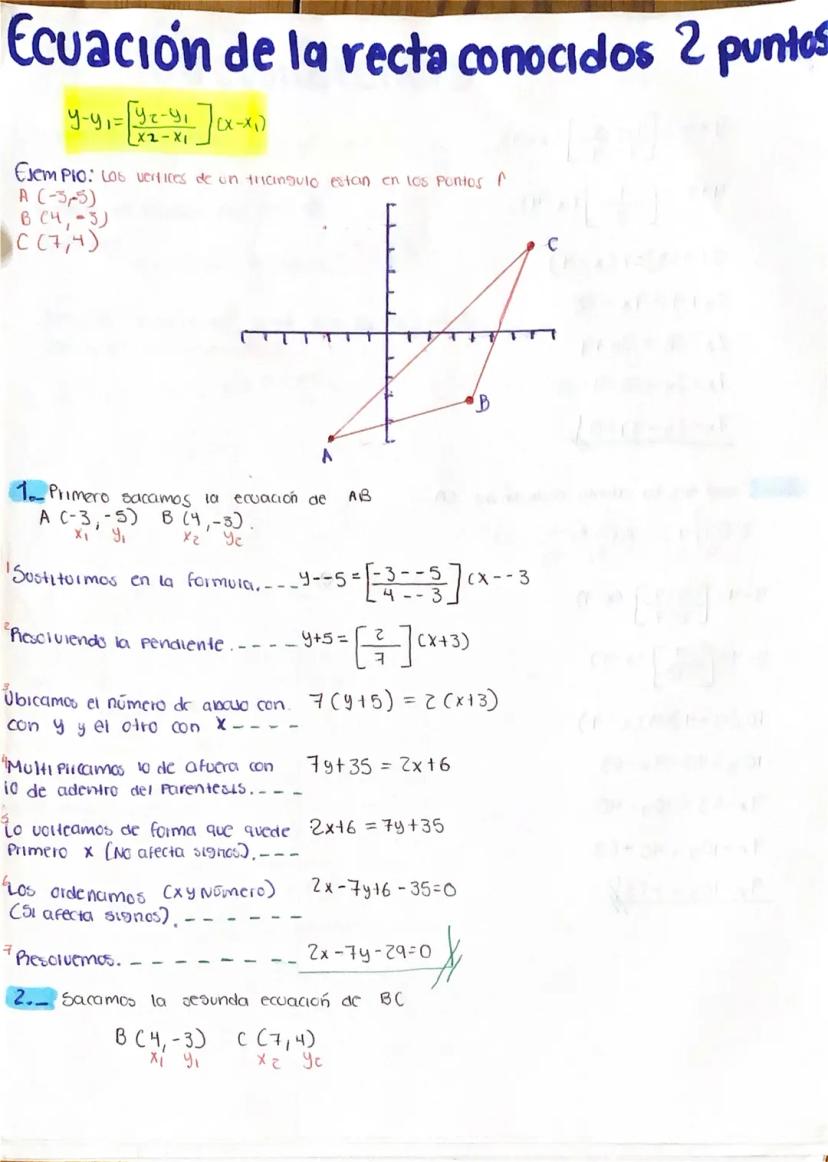 Ecuación de la recta conocidos 2 puntos
y-y₁=[y₂-y₁/x₂-x₁](x-x₁)
Ejemplo: Los vertices de un triangulo estan en los puntos A
A (-3,-5)
B (4, -3)
C (7,4)
C
B
A
1.- Primero sacamos la ecuación de AB
A (-3,-5) B (4,-3).
x₁ y₁ x₂ y₂
1 Sustituimos en la formula.---- y--5 = [-3--5/4--3](x--3
2 Resolviendo la pendiente.---- y+5 = [2/7](x+3)
3 Ubicamos el número de abajo con 7(y+5) = 2(x+3)
con y y el otro con x----
4 Multiplicamos lo de afuera con 7y+35 = 2x+6
lo de adentro del Parentesis.---
5 Lo volteamos de forma que quede 2x+6 = 7y+35
Primero x (No afecta signos).---
6 Los ordenamos (x y Número) 2x-7y+6-35=0
(Si afecta signos).------
7 Resolvemos.-------- 2x-7y-29=0
2.- Sacamos la segunda ecuación de BC
B (4,-3) C (7,4)
x₁ y₁ x₂ y₂